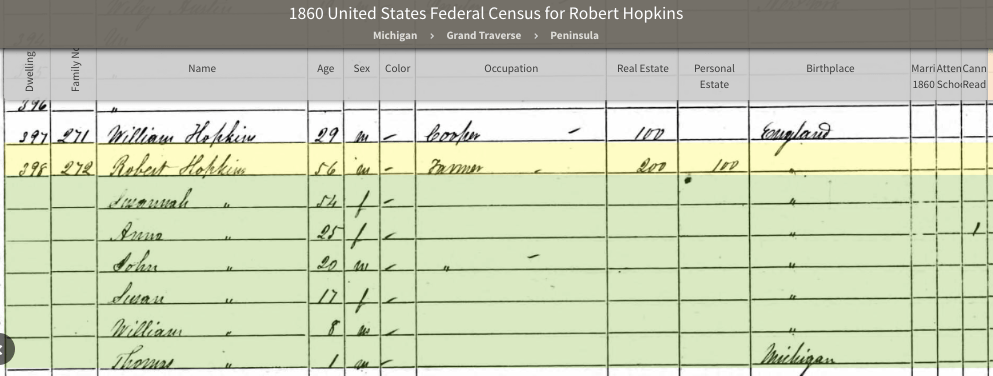 1860 United States Federal Census for Robert Hopkins
Michigan › Grand Traverse › Peninsula
Dwelling Family No Name Age Sex Color Occupation Real Estate Personal Estate Birthplace Marri 1860 Atten Scho Cann Read
396 "
397 271 William Hopkins 29 m – Cooper – 100 England
398 272 Robert Hopkins 56 m – Farmer - 200 100 "
Susannah " 54 f – "
Anna " 25 f – " 1
John " 20 m – " – "
Susan " 17 f – "
William " 8 m – "
Thomas " 1 m – Michigan